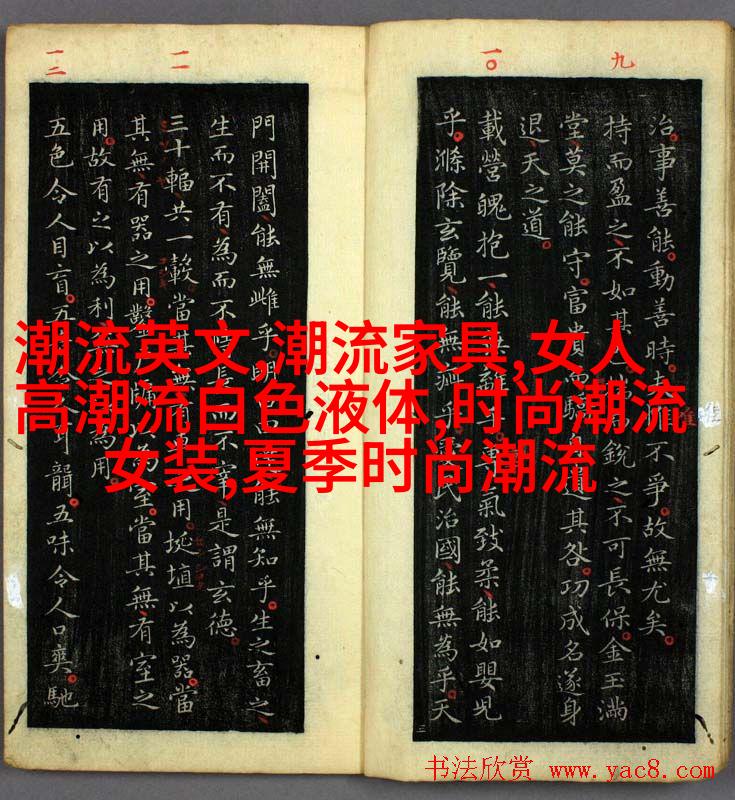 潮流英文,潮流家具,女人
高潮流白色液体,时尚潮流
女装,夏季时尚潮流
九
治事善能動善時夫唯不爭故無尤矣
持而盈之不如其銳之不可長保金玉滿
堂莫之能守富貴而驕其咎功成名遂身
退天之道
一〇
載營魄抱一能無離乎專氣致柔能如嬰兒
乎滌除玄覽能無疵乎民治國能無為乎天
門開闔能無雌乎明能無知乎生之畜之
生而不有為而不恃長而不宰是謂玄德
一一
三十輻共一轂當其無有車之用埏埴以為器當
其無有器之用鑿戶牖以為室當其無有室之
用故有之以為利為用
一二
五色令人目盲五人耳聾五味令人口爽馳
书法欣赏 www.yac8.com